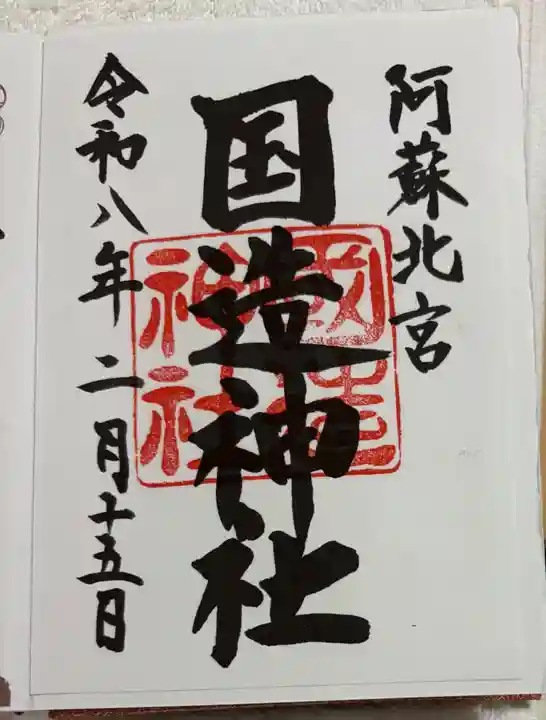 阿蘇北宮
国造神社
令和八年二月十五日